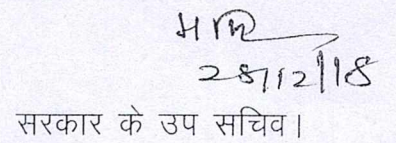 28/12/18
सरकार के उप सचिव।